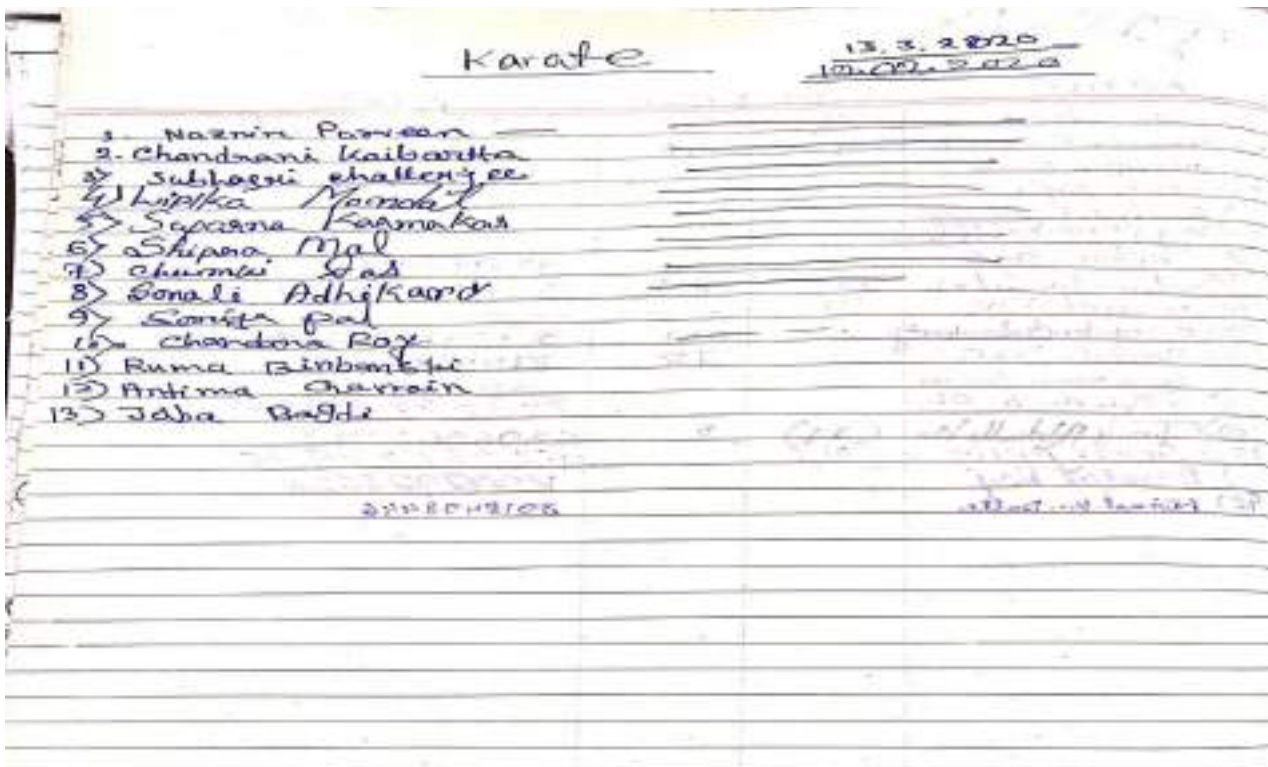 Karate 13.3.2020
1. Naznin Parveen
2. Chandrani Kaibartta
3) Subhasri Chatterjee
4) Lipika Mondal
5) Suparna Karmakar
6) Shipra Mal
7) Chumki Das
8) Sonali Adhikari
9) Pal
10. Chandana Roy
11) Ruma
12) Antima
13) Jaba Bagdi